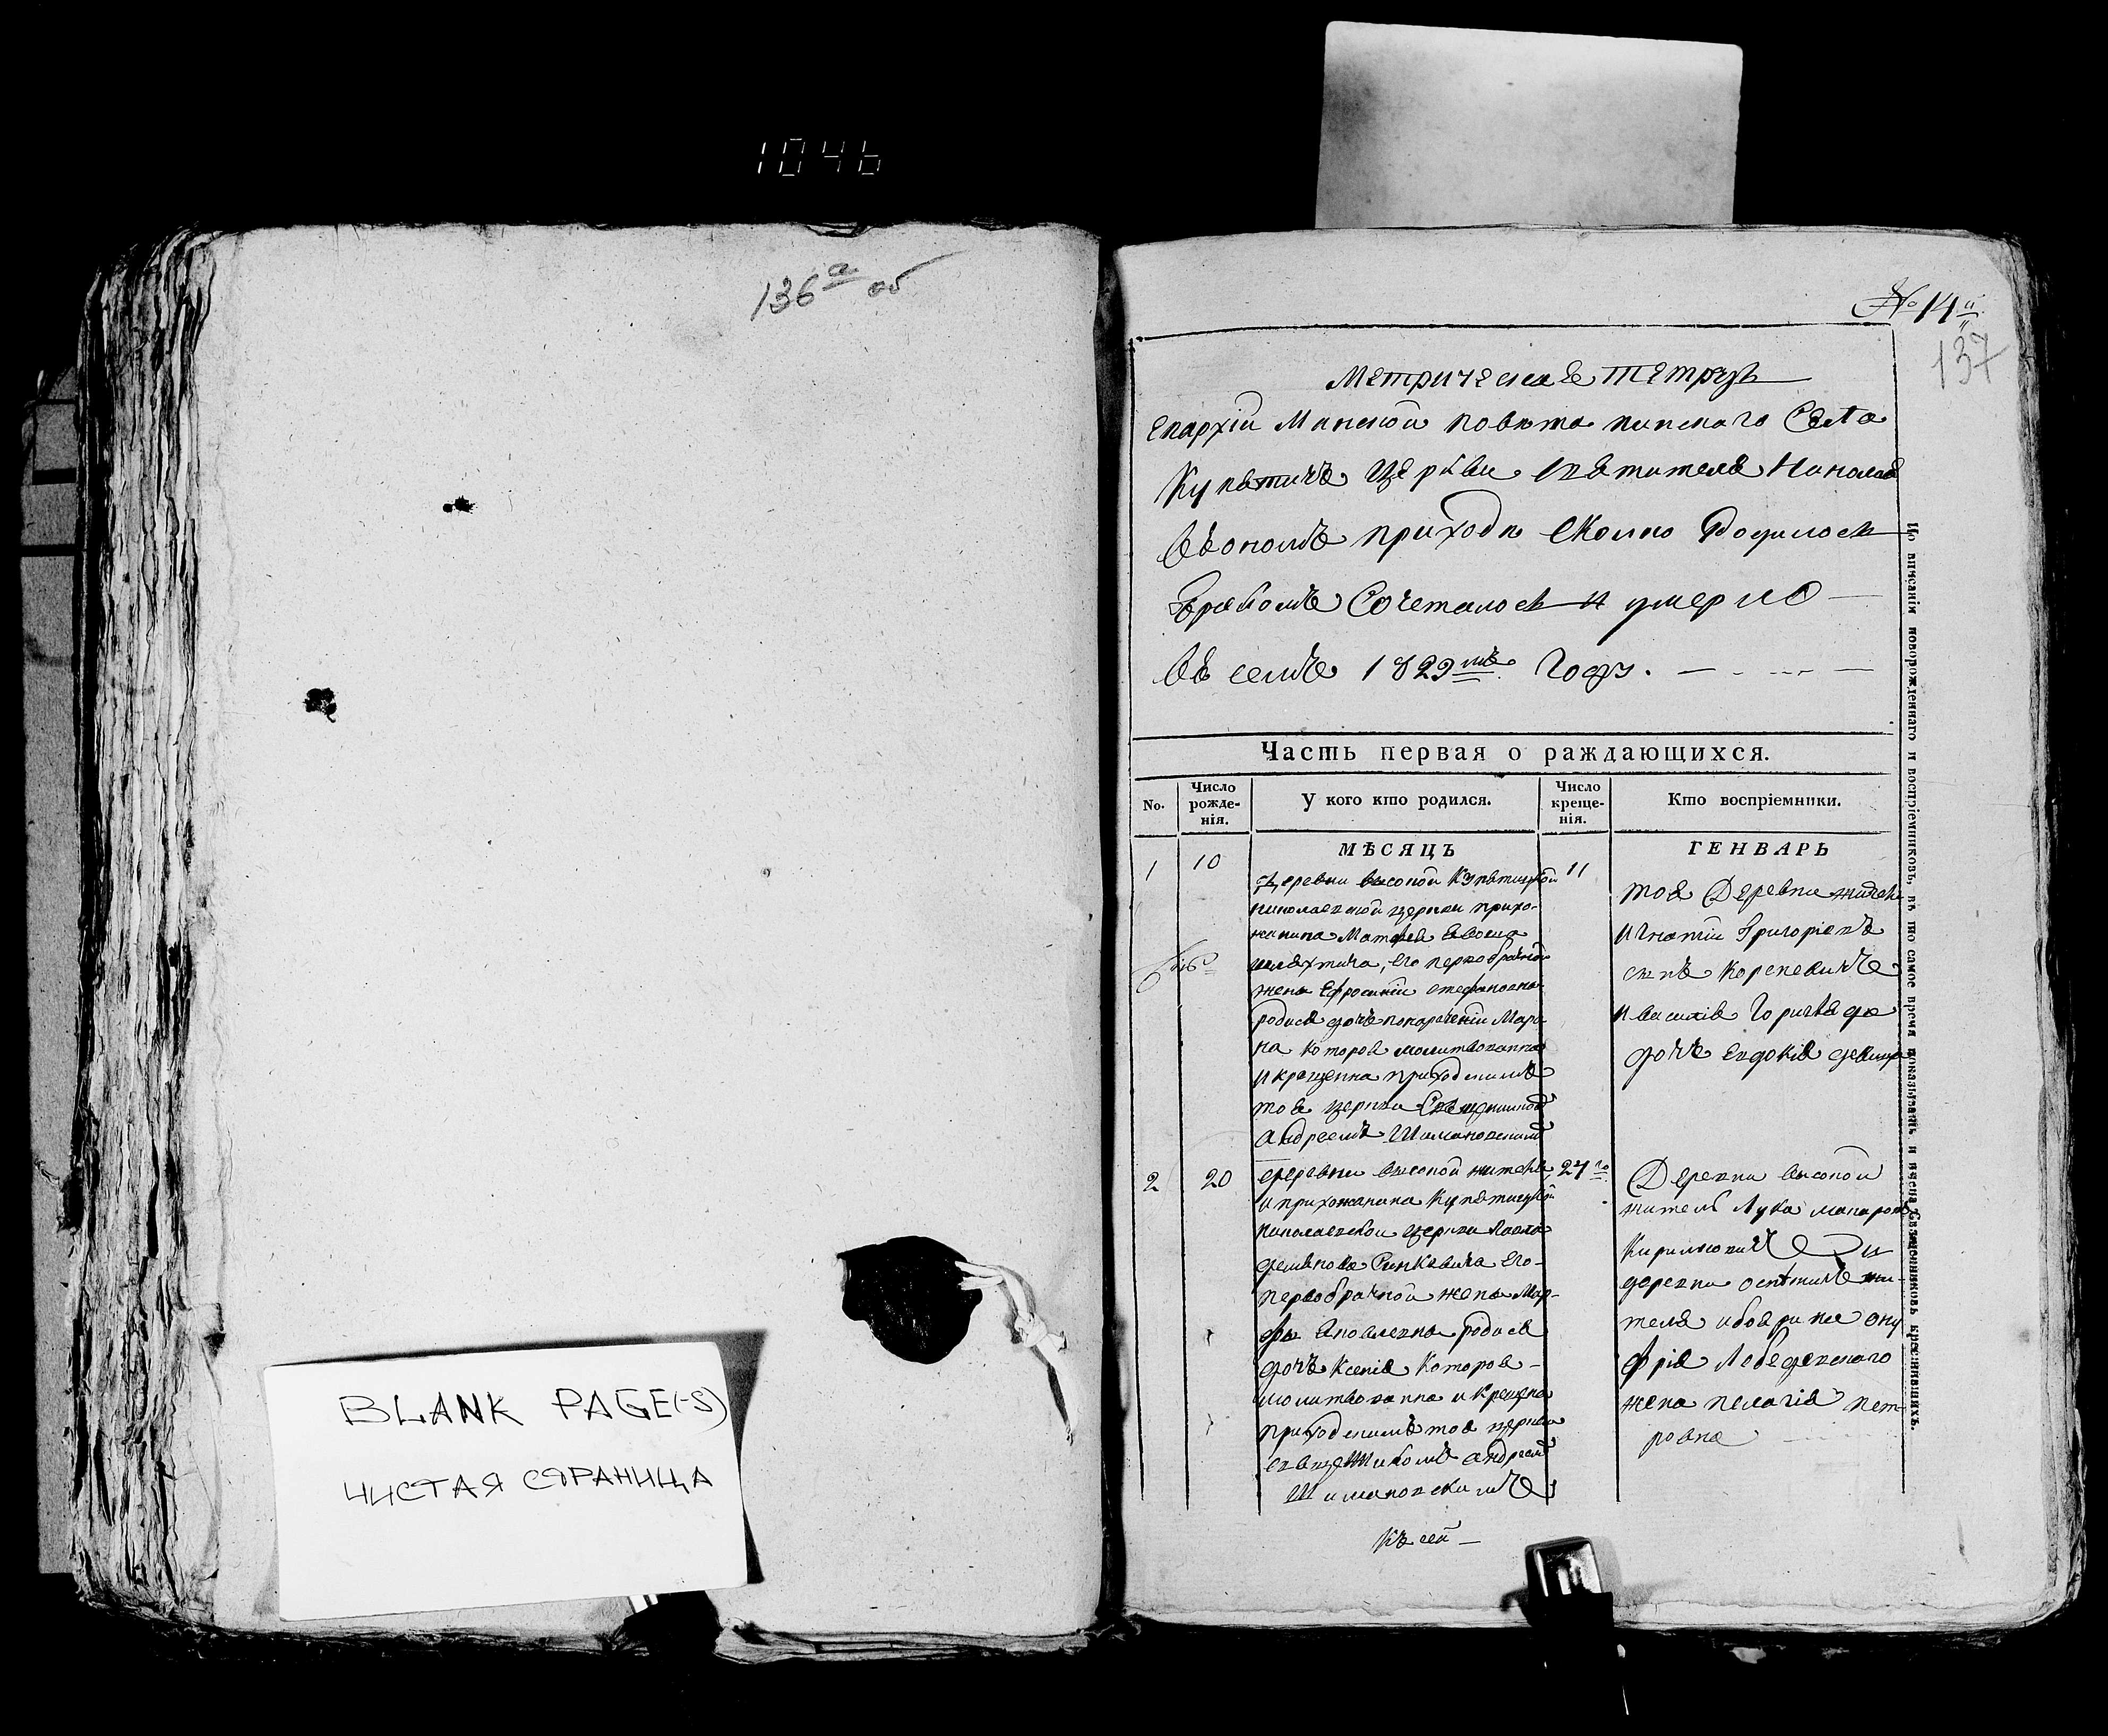 1046
136а об
BLANK PAGE(-S)
ЧИСТАЯ СТРАНИЦА
No 14й
137
Метрическая тетрадь
Епархіи Минской повѣта пинскаго Села
Купятичъ Церкви Святителя Николая
въ ономъ приходѣ сколко Родилось
Бракомъ Сочеталось и умерло
въ семъ 1829мъ Году.
Часть первая о раждающихся.
No.
Число рожде-нія.
У кого кто родился.
Число креще-нія.
Кто воспріемники.
МѢСЯЦЪ
ГЕНВАРЬ
1
10
Деревни высокой Купятицкой
николаевской церкви прихо-
жанина Матфея
его первобрачной
жены Ефросиніи стефановны
родися дочь нареченіи Мари-
на которая молитвованна
и крещенна приходскимъ
тоя церкви Священникомъ
андреемъ Шимановскимъ
11
тоя Деревни житель
игнатій Григоріевъ
сынъ Кореневичъ
и василія
дочь евдокія девица
2
20
деревни высокой жителя
и прихожанина Купятицкой
николаевской церкви Павла
Синкевича его
первобрачной жены Мар-
фы Яковлевны родися
дочь Ксенія Которая
молитвованна и Крещена
приходскимъ тоя церкви
священникомъ андреемъ
Шимановскимъ
27го
Деревни высокой
житель Лука макаровъ
Кирилювичъ и
деревни осятичъ жи-
теля ону
фрія
жена пелагія пет-
ровна
Къ сей
Во писанія новорожденнаго и воспріемниковъ, въ то самое время показывать и имена Священниковъ крестившихъ.